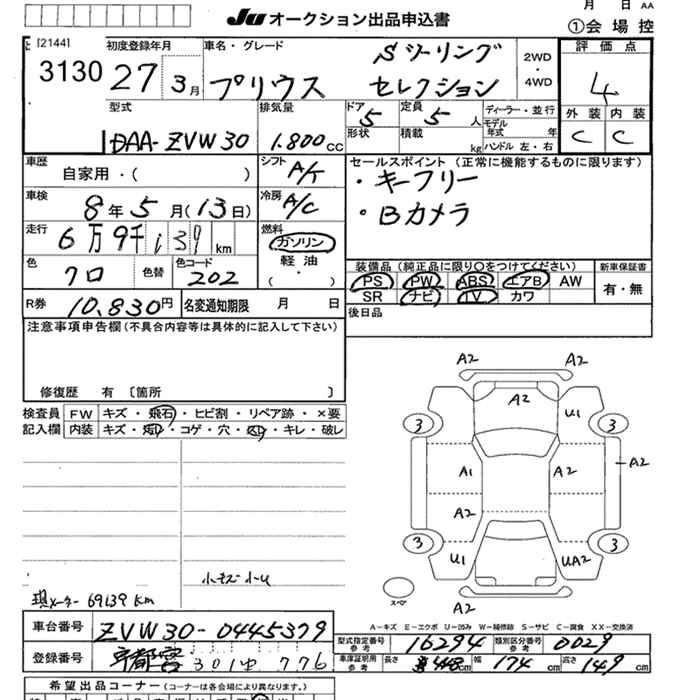 月 日 AA
JU オークション出品申込書
①会場控
[2144]
3130
初度登録年月
27 3月
車名・グレード
プリウス
Sツーリング
セレクション
2WD
・
4WD
評価点
4
外装 内装
C C
型式
DAA-ZVW30
排気量
1.800cc
ドア 5
定員 5人
形状
積載 kg
ディーラー・並行
モデル年式 年
ハンドル 左・右
車歴
自家用・( )
シフト
車検
8年5月(13日)
冷房
A/C
走行
6万9千139km
燃料
ガソリン
軽油
・( )
色
クロ
色替
色コード
202
R券
10,830円
名変通知期限 月 日
セールスポイント (正常に機能するものに限ります)
・キーフリー
・Bカメラ
装備品 (純正品に限り〇をつけてください)
PS PW ABS エアB AW
SR ナビ TV カワ
新車保証書
有・無
後日品
注意事項申告欄(不具合内容等は具体的に記入して下さい)
修復歴 有 〔箇所 〕
検査員
記入欄
FW キズ・飛石・ヒビ割・リペア跡・×要
内装 キズ・ ・コゲ・穴・ ・キレ・破レ
小キズ小U
現メーター 69139km
A2
A2
U1
3
3
A1
A2
A2
A2
3
3
U1
UA2
A2
スペア
A-キズ E-エクボ U-凹み W-補修跡 S-サビ C-腐食 XX-交換済
車台番号
ZVW30-0445379
登録番号
301 776
型式指定番号参考
16294
類別区分番号参考
0029
車庫証明用参考
長さ 446cm
幅 174cm
高さ 149cm
希望出品コーナー(コーナーは各会場により異なります)